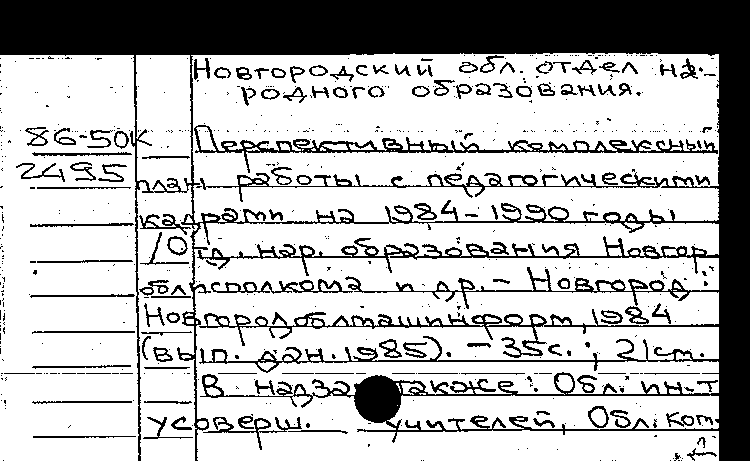 Новгородский обл. отдел на-
родного образования.
86-50К Перспективный комплексный
2495 план работы с педагогическими
кадрами на 1984-1990 годы
/Отд. нар. образования Новгор.
облисполкома и др. - Новгород:
Новгородоблташинформ, 1984
(вып. дан. 1985). - 35с.; 21см.
В надзаг. также: Обл. ин-т
усоверш. учителей, Обл. ком.